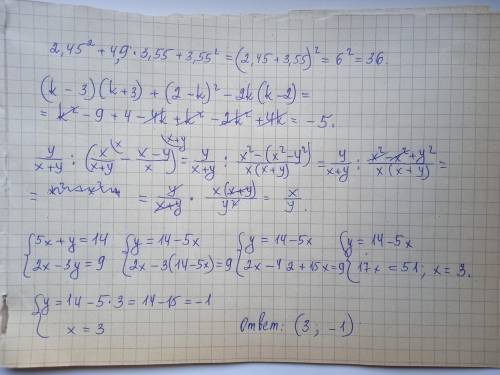 2,45² + 4,9 · 3,55 + 3,55² = (2,45 + 3,55)² = 6² = 36.
(k - 3)(k + 3) + (2 - k)² - 2k(k - 2) =
= k² - 9 + 4 - 4k + k² - 2k² + 4k = -5.
y/(x+y) : (x/(x+y) - (x-y)/x) = y/(x+y) : (x² - (x² - y²))/(x(x+y)) = y/(x+y) : (x² - x² + y²)/(x(x+y)) =
= y/(x+y) · x(x+y)/y² = x/y.
{5x + y = 14 {y = 14 - 5x {y = 14 - 5x {y = 14 - 5x
{2x - 3y = 9 {2x - 3(14 - 5x) = 9 {2x - 42 + 15x = 9 {17x = 51; x = 3.
{y = 14 - 5 · 3 = 14 - 15 = -1
{x = 3 Ответ: (3; -1)